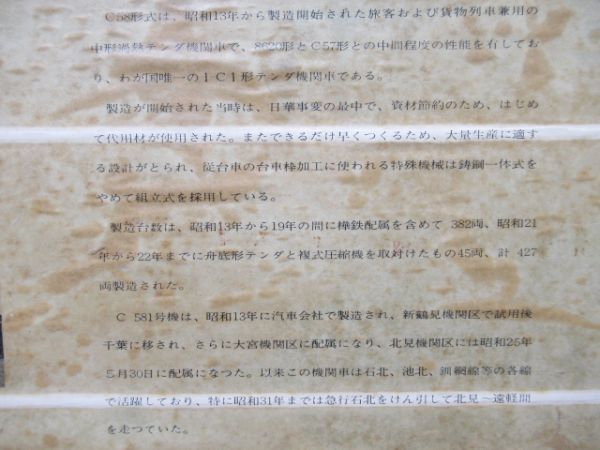 C58形式は、昭和13年から製造開始された旅客および貨物列車兼用の
中形過熱テンダ機関車で、8620形とC57形との中間程度の性能を有してお
り、わが国唯一の1C1形テンダ機関車である。
製造が開始された当時は、日華事変の最中で、資材節約のため、はじめ
て代用材が使用された。またできるだけ早くつくるため、大量生産に適す
る設計がとられ、従台車の台車枠加工に使われる特殊機械は鋳鋼一体式を
やめて組立式を採用している。
製造台数は、昭和13年から19年の間に樺鉄配属を含めて 382両、昭和21
年から22年までに舟底形テンダと複式圧縮機を取対けたもの45両、計 427
両製造された。
C 581号機は、昭和13年に汽車会社で製造され、新鶴見機関区で試用後
千葉に移され、さらに大宮機関区に配属になり、北見機関区には昭和25年
5月30日に配属になつた。以来この機関車は石北、池北、釧網線等の各線
で活躍しており、特に昭和31年までは急行石北をけん引して北見〜遠軽間
を走つていた。